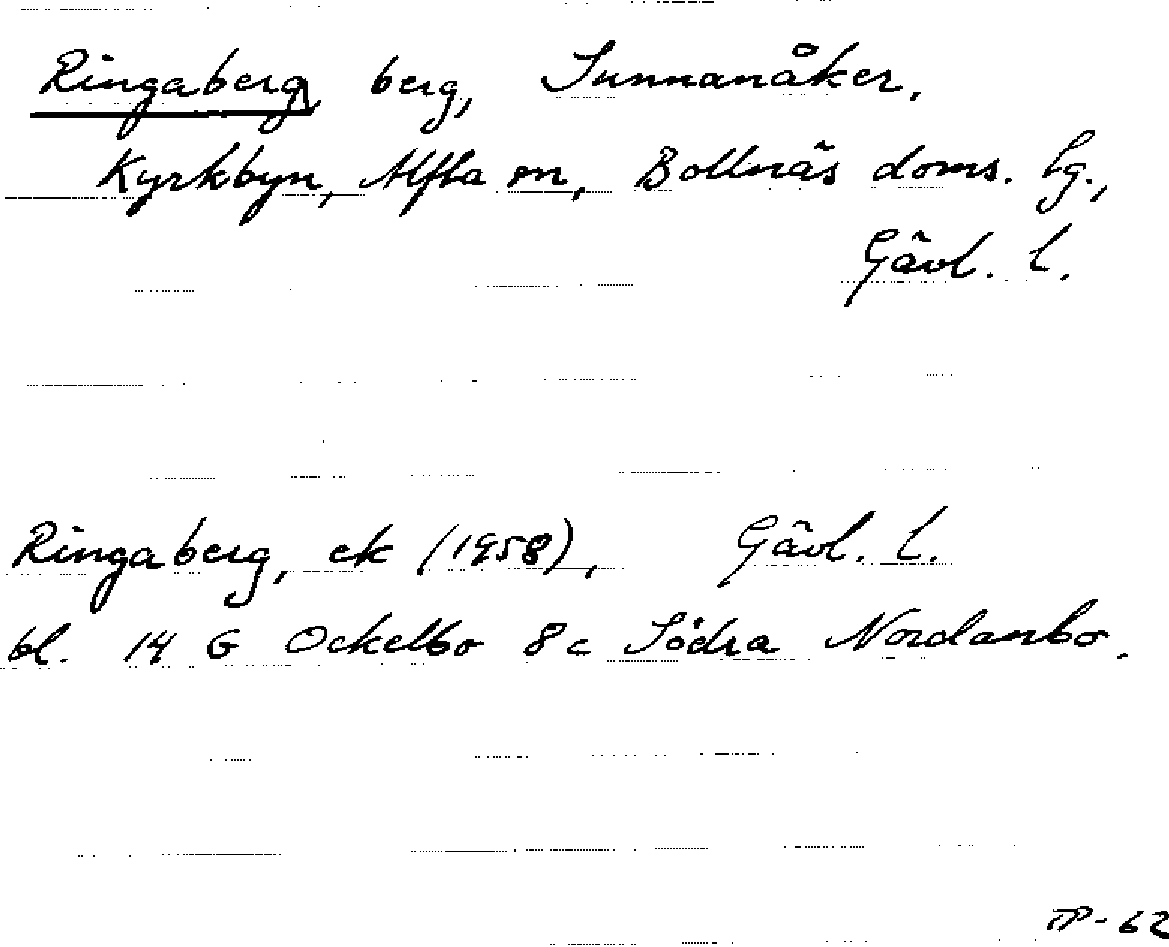 Ringaberg, berg, Sunnanåker,
Kyrkbyn, Alfta sn, Bollnäs doms. lg.,
Gävl. l.
Ringaberg, ek (1958), Gävl. l.
bl. 14 G Ockelbo 8c Södra Nordanbo.
TP-62